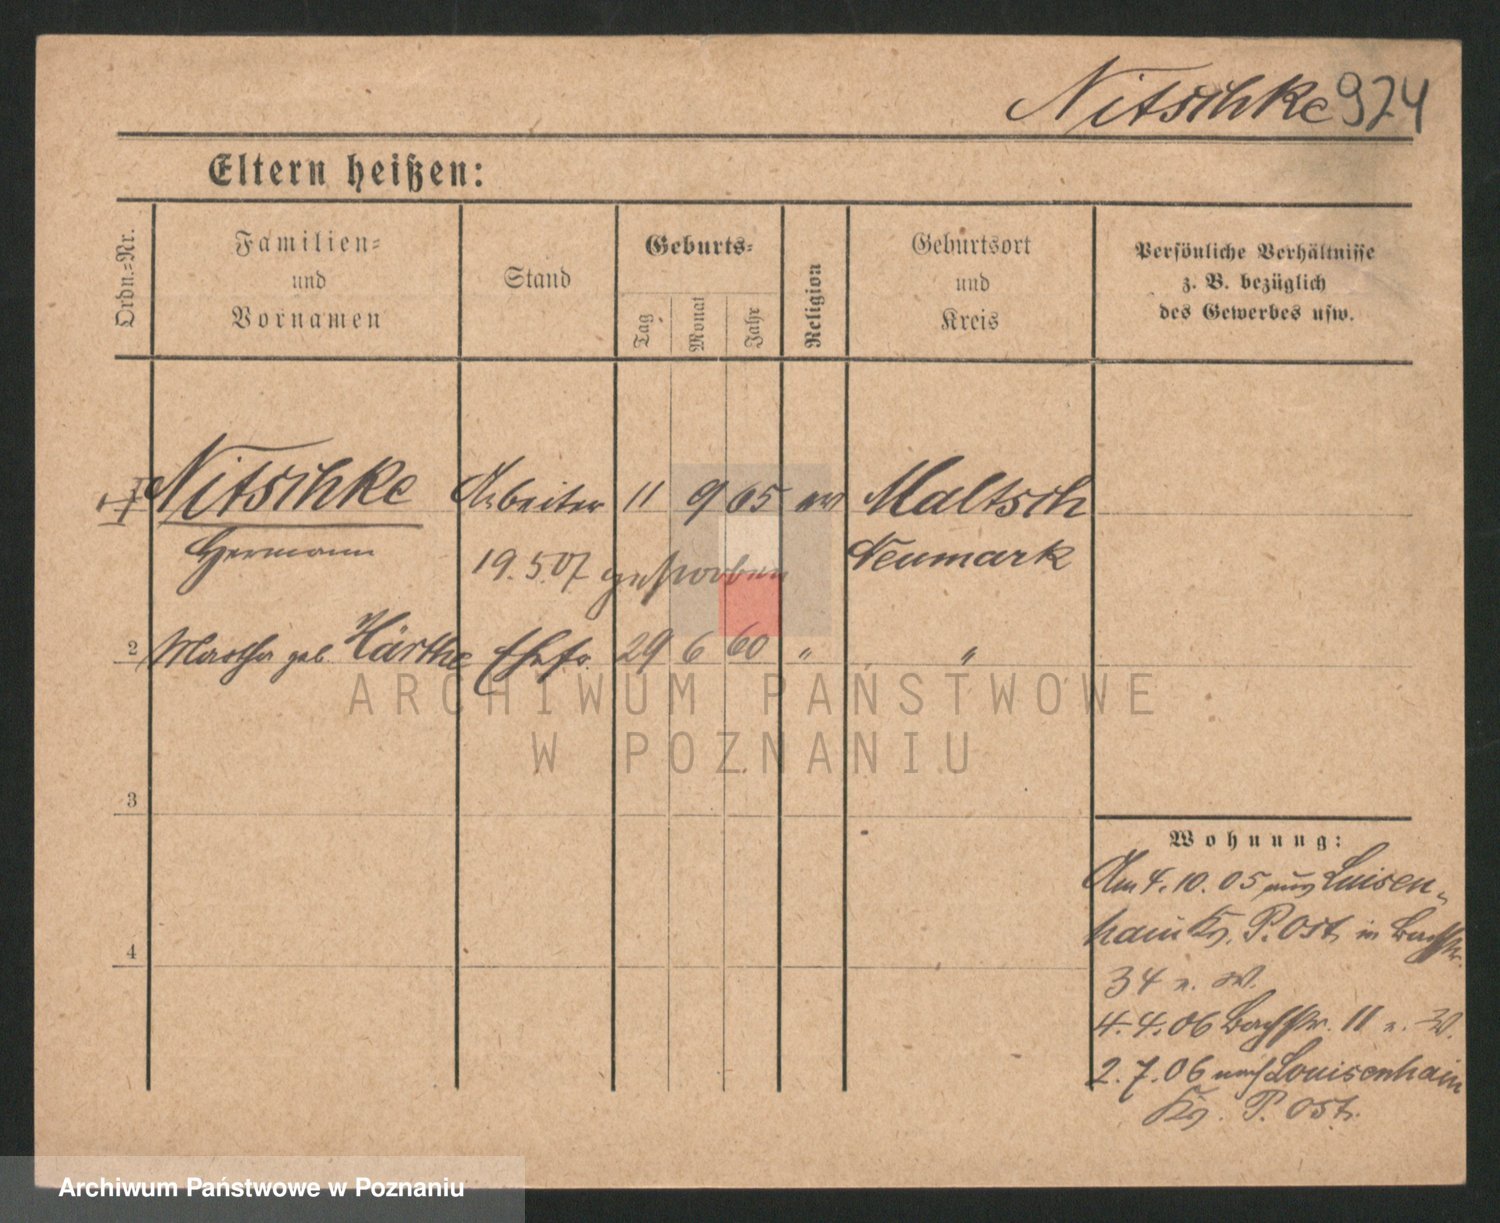 Nitschke 924
Eltern heißen:
Ordn.=Nr.
Familien=
und
Vornamen
Stand
Geburts=
Tag
Monat
Jahr
Religion
Geburtsort
und
Kreis
Persönliche Verhältnisse
z. B. bezüglich
des Gewerbes usw.
1 Nitschke Arbeiter 11 9 65 ev Maltsch
Hermann 19.5.07 gestorben Neumark
2 Martha geb. Härthe Ehefr. 29 6 60 " "
ARCHIWUM PAŃSTWOWE
W POZNANIU
3
4
Wohnung:
Am 4.10.05 aus Luisen-
hain Kr. P. Ost. in Bachstr.
34 n. W.
4.4.06 Bachstr. 11 n. W.
2.7.06 nach Louisenhain
Kr. P. Ost.
Archiwum Państwowe w Poznaniu